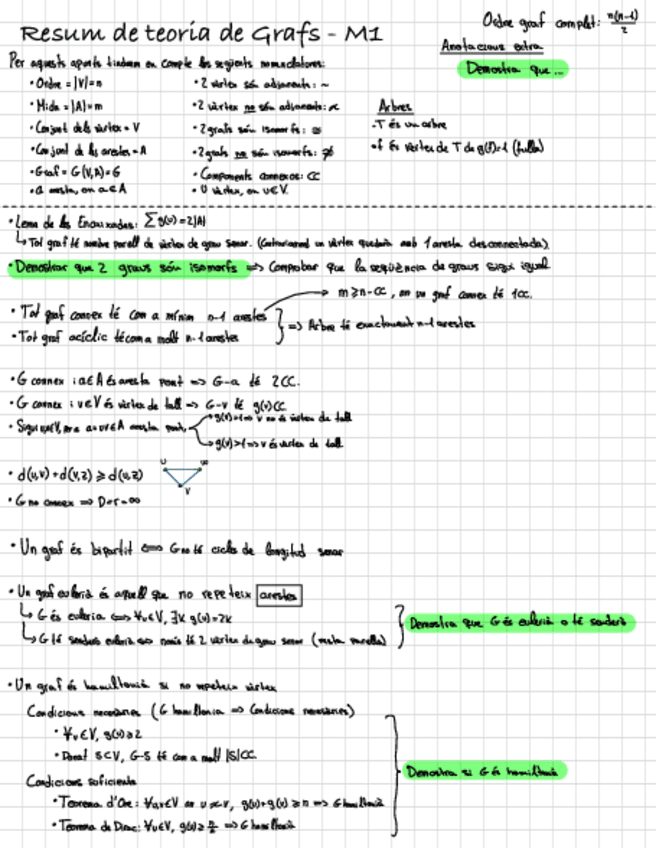 Resum de teoria de Grafs - M1
Ordre graf complet: n(n-1)/2
Anotacions extra
Demostra que ...
Per aquests apunts tindrem en compte les següents nomenclatures:
• Ordre = |V| = n
• Mida = |A| = m
• Conjunt dels vèrtex = V
• Conjunt de les arestes = A
• Graf = G(V,A) = G
• a aresta, on a∈A
• 2 vèrtex són adjacents: ~
• 2 vèrtex no són adjacents: ≁
• 2 grafs són isomorfs: ≅
• 2 grafs no són isomorfs: ≇
• Components connexos: CC
• U vèrtex, on u∈V.
Arbres
- T és un arbre
• f és vèrtex de T de g(f)=1 (fulla)
• Lema de les Encaixades: ∑g(v) = 2|A|
↳ Tot graf té nombre parell de vèrtex de grau senar. (Contrariament un vèrtex quedaria amb 1 aresta desconnectada)
• Demostrar que 2 graus són isomorfs => Comprobar que la seqüència de graus sigui igual
→ m≥n-CC, on un graf connex té 1CC.
• Tot graf connex té com a mínim n-1 arestes
• Tot graf acíclic té com a molt n-1 arestes
=> Arbre té exactament n-1 arestes
• G connex i a∈A és aresta pont => G-a té 2CC.
• G connex i v∈V és vèrtex de tall => G-v té g(v)CC
• Sigui u,v∈V, a=uv∈A aresta pont,
→ g(v)=1 => v no és vèrtex de tall
→ g(v)>1 => v és vèrtex de tall
• d(u,v)+d(v,z) ≥ d(u,z)
U
V
• G no connex => D=r=∞
• Un graf és bipartit <=> G no té cicles de longitud senar
• Un graf eulerià és aquell que no repeteix arestes
↳ G és eulerià <=> ∀v∈V, ∃k g(v)=2k
↳ G té senderó eulerià <=> només té 2 vèrtex de grau senar (resta parells)
Demostra que G és eulerià o té senderó
• Un graf és hamiltonià si no repeteix vèrtex
Condicions necessàries (G hamiltonià => Condicions necessàries)
• ∀v∈V, g(v)≥2
• Donat S⊂V, G-S té com a molt |S|CC
Condicions suficients
• Teorema d'Ore: ∀u,v∈V on u≁v, g(u)+g(v) ≥ n => G hamiltonià
• Teorema de Dirac: ∀v∈V, g(v) ≥ n/2 => G hamiltonià
Demostra si G és hamiltonià